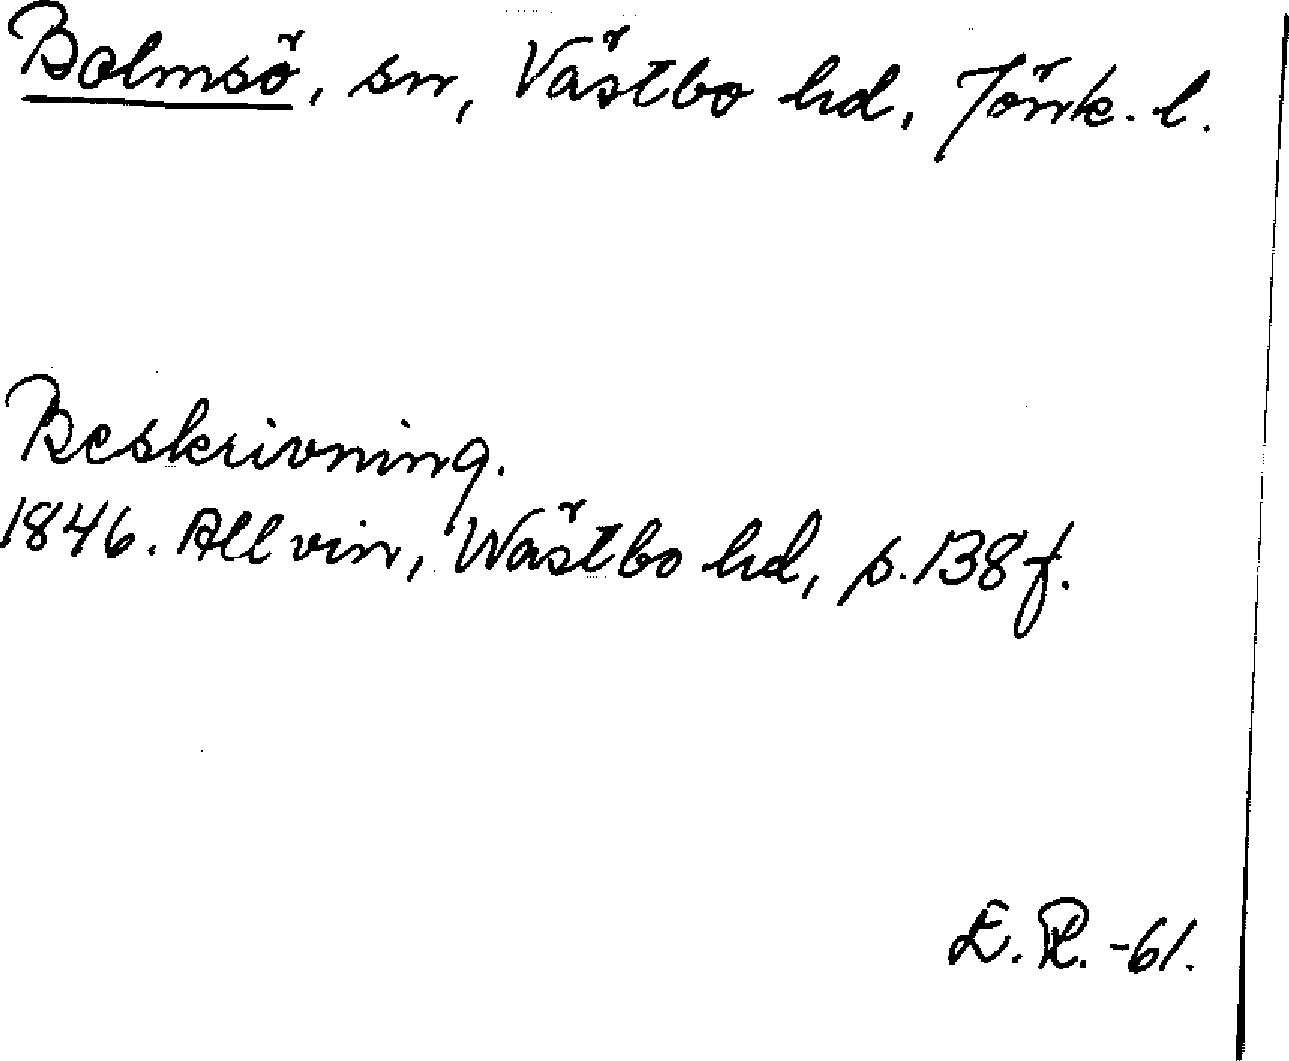 Bolmsö, sn, Västbo hd, Jönk. l.
Beskrivning.
1846. Allvin, Wästbo hd, s. 138 f.
E. R. -61.